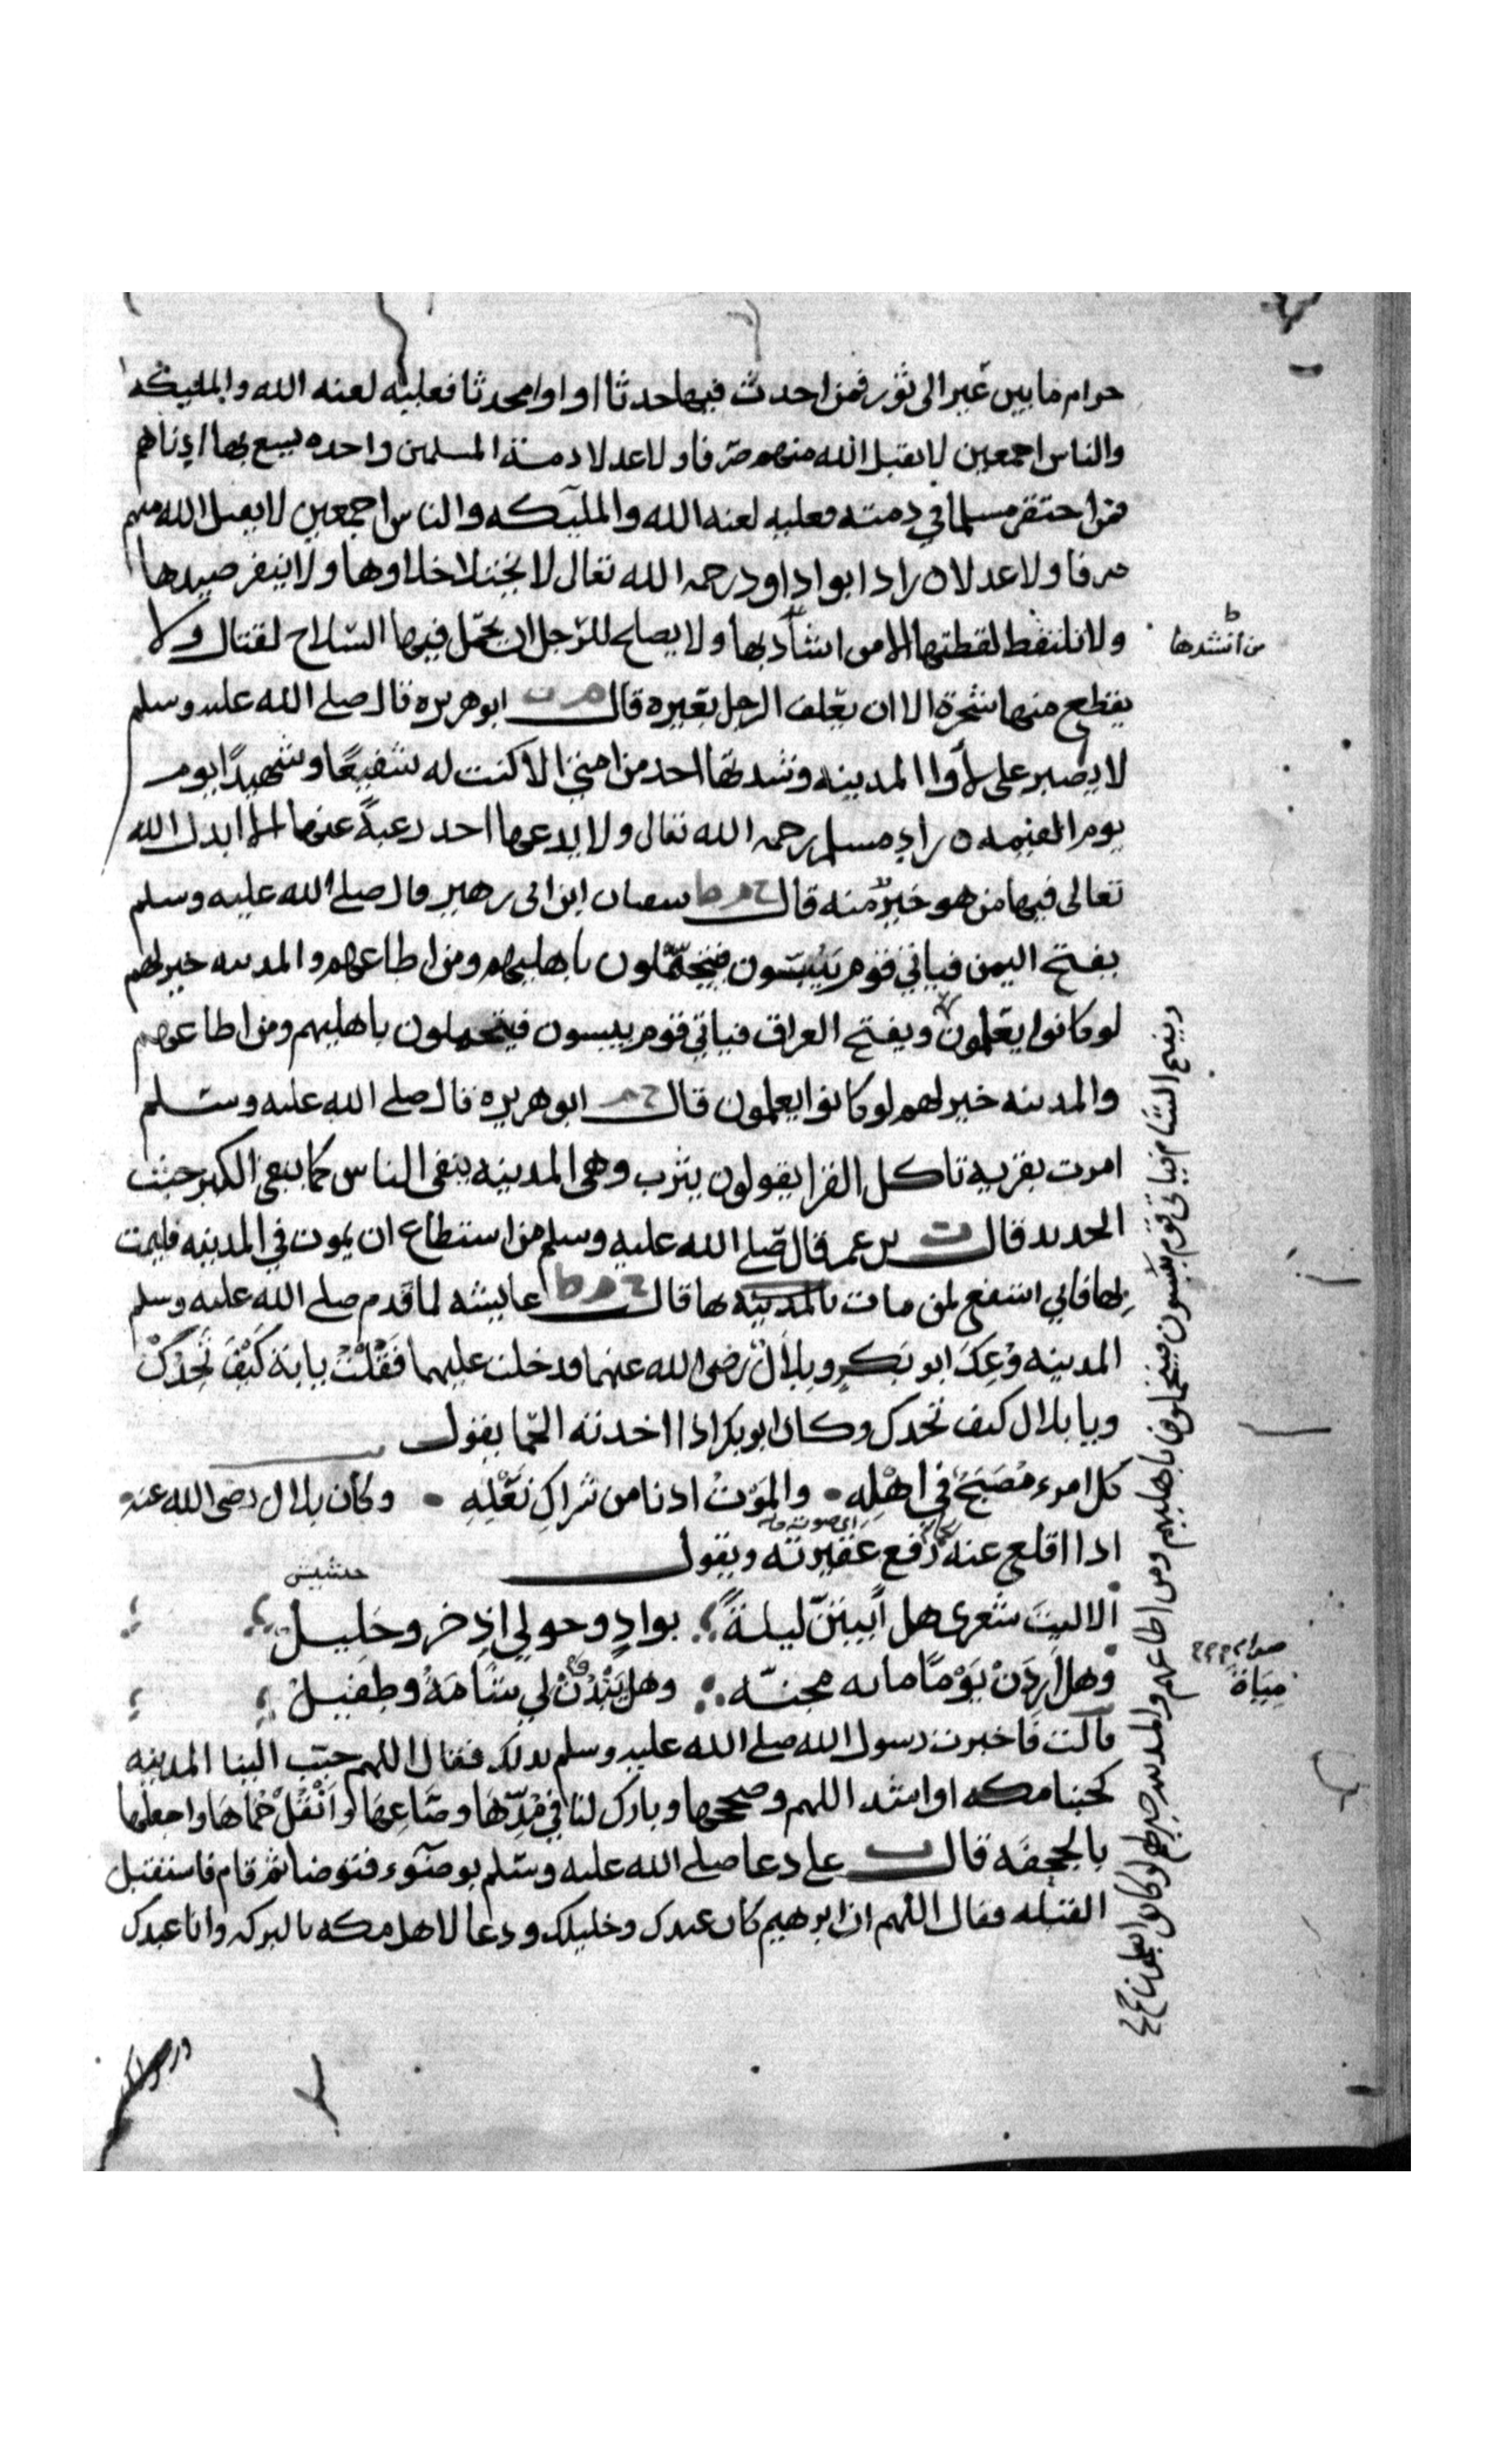 حرام ما بين عير الى ثور فمن احدث فيها حدثا او اوا محدثا فعليه لعنه الله والمليكه
والناس اجمعين لا يقبل الله منهم صرفا ولا عدلا دمة المسلمين واحده يسع بها ادناهم
فمن احتقر مسلما في دمته فعليه لعنه الله والمليكه والناس اجمعين لا يقبل الله منهم
صرفا ولا عدلا ٥ زاد ابو داود رحمه الله تعالى لا يختلا خلاوها ولا ينفر صيدها
ولا تلتقط لقطتها الا من اشاد بها ولا يصلح للرجل ان يحمل فيها السلاح لقتال ولا
من انشدها
يقطع منها شجرة الا ان يعلف الرجل بعيره قال م ت ابو هريره قال صلى الله عليه وسلم
لا يصبر على لأوا المدينه وشدتها احد من امتي الا كنت له شفيعًا وشهيدًا يوم
يوم القيمه ٥ زاد مسلم رحمه الله تعالى ولا يدعها احد رغبةً عنها الا ابدل الله
تعالى فيها من هو خير منه قال خ م ط سفيان ابن ابى زهير قال صلى الله عليه وسلم
يفتح اليمن فياتي قوم يبسون فيتحملون باهليهم ومن اطاعهم والمدينه خير لهم
لو كانوا يعلمون ويفتح العراق فياتي قوم يبسون فيتحملون باهليهم ومن اطاعهم
والمدينه خير لهم لو كانوا يعلمون قال خ م ابو هريره قال صلى الله عليه وسلم
امرت بقريه تاكل القرا يقولون يثرب وهى المدينه ينفى الناس كما ينفى الكير خبث
الحديد قال ت بن عمر قال صلى الله عليه وسلم من استطاع ان يموت في المدينه فليمت
بها فاني اشفع لمن مات بالمدينه بها قال خ م ط عايشه لما قدم صلى الله عليه وسلم
المدينه وُعِكَ ابو بكرٍ وبلالٌ رضى الله عنهما فدخلت عليهما فَقُلْتُ يا ابة كَيْفَ تَجِدُكْ
ويا بلال كيف تجدك وكان ابو بكر اذا اخدته الحما يقول
كل امرء مُصَبَحٌ في اهْلِهِ • والمَوْتُ ادنا من شراكِ نَعْلِهِ • وكان بلال رضى الله عنه
اذا اقلع عنه رفع عقيرته ويقول
اى صوته
حشيش
الا ليتَ شعرى هل أَبيتَنّ ليلةً بوادٍ وحولي اذِخر وجَلِيل
وهل أَرِدَنْ يَوْمًا مياه مجنّه وهل يَبْدُنْ لي شَامَةُ وطفيلْ
مِيَاهَ
قالت فاخبرت رسول الله صلى الله عليه وسلم بدلك فقال اللهم حبّب الينا المدينه
كحبنا مكه او اشد اللهم وصححها وبارك لنا في مُدِّهَا وصَاعِهَا وانْقُلْ حُمَاهَا واجعلها
بالجحفه قال ت علي دعا صلى الله عليه وسلم بوضوء فتوضا ثم قام فاستقبل
القبله فقال اللهم ان ابرهيم كان عبدك وخليلك ودعا لاهل مكه بالبركه وانا عبدك
ويفتح الشام فياتي قوم يبسون فيتحملون باهليهم ومن اطاعهم والمدينه خير لهم لو كانوا يعلمون